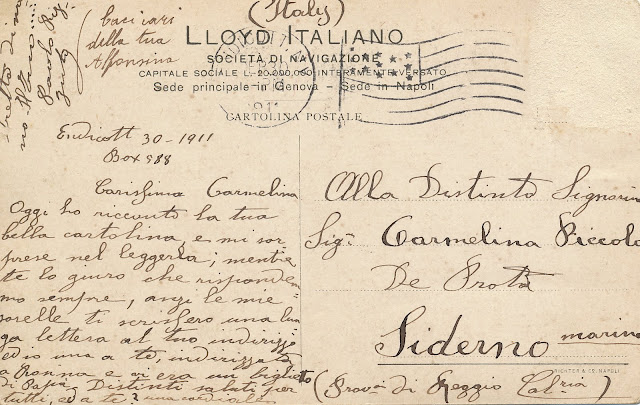 (Italy)
Baci cari
della tua
Affonsina
LLOYD ITALIANO
SOCIETÀ DI NAVIGAZIONE
CAPITALE SOCIALE L. 20.000.000 INTERAMENTE VERSATO
Sede principale in Genova - Sede in Napoli
CARTOLINA POSTALE
Endicott 30-1911
Box 588
Carissima Carmelina
Oggi ho ricevuto la tua
bella cartolina, e mi sor
prese nel leggerla; mentre
te lo giuro che risponde
mo sempre, anzi le mie
sorelle ti scrissero una lun
ga lettera al tuo indirizzo
ed io una a te, indirizzata
a Nonna e vi era un biglietto
di Papà. Distinti saluti per
tutti, ed a te
Alla Distinta Signorina
Sig.na Carmelina Piccolo
De Prota
Siderno marina
RICHTER & Co. NAPOLI
(Prov. di Reggio Cal-ria)